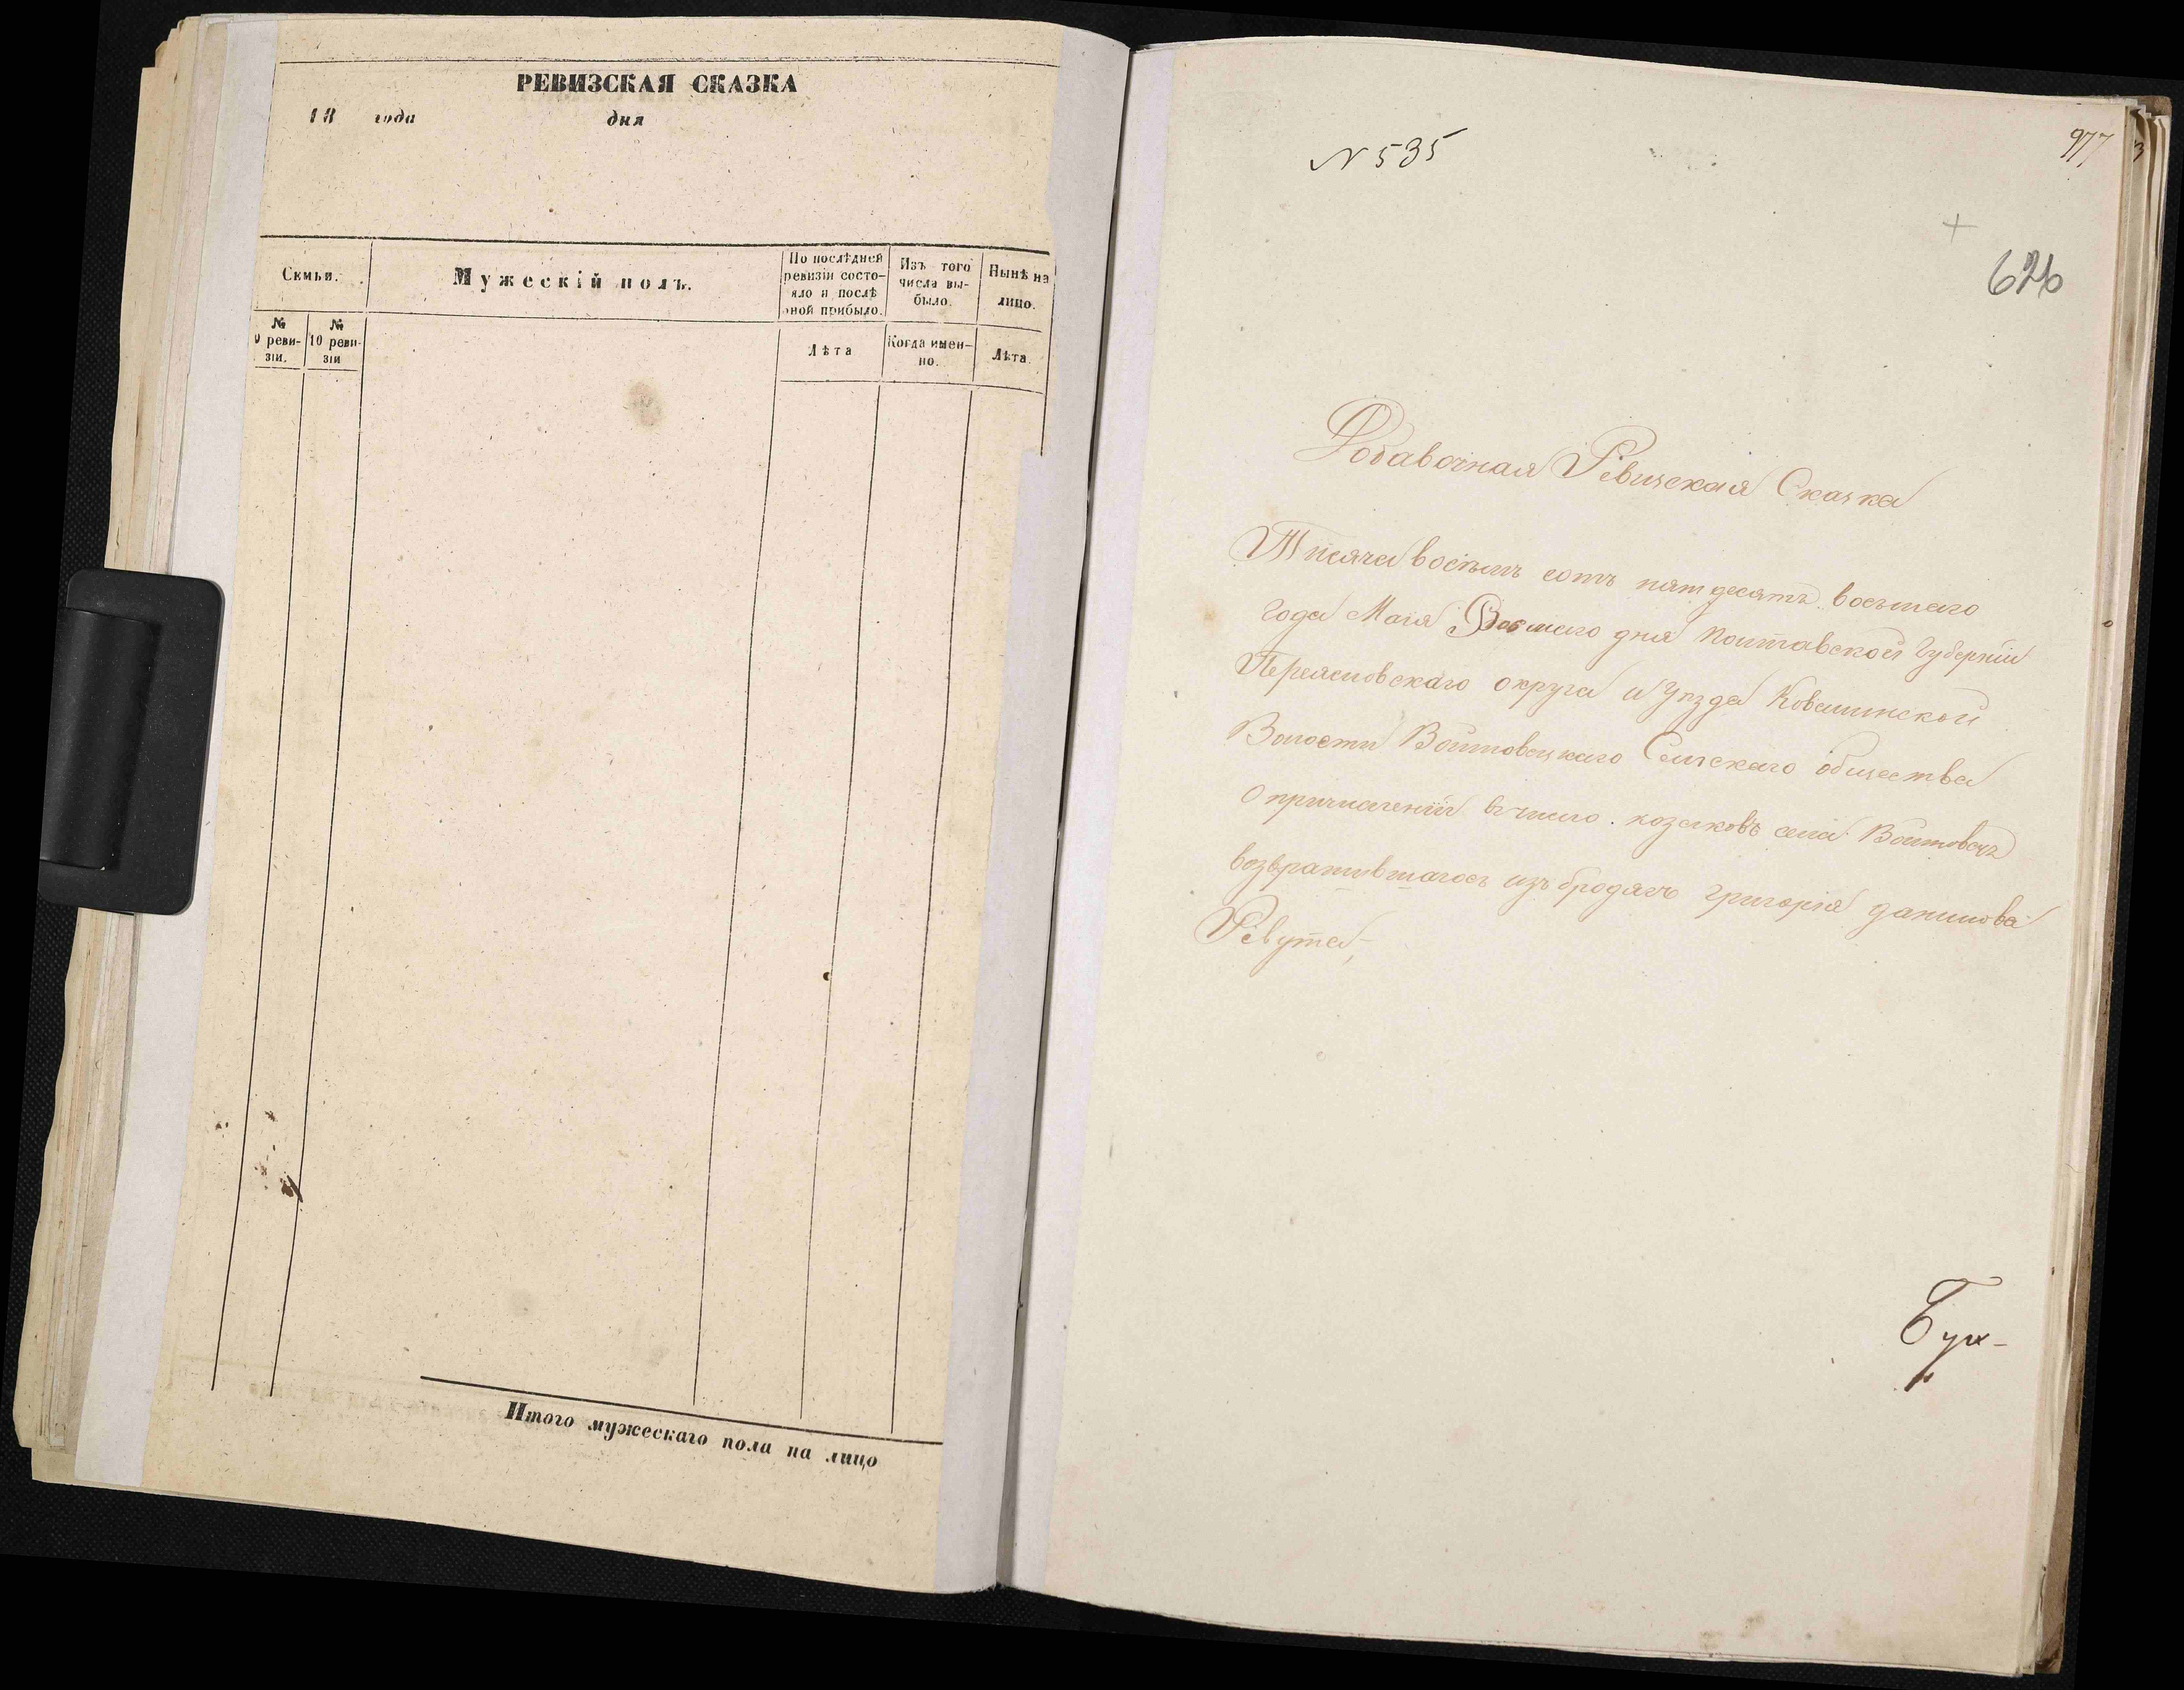 РЕВИЗСКАЯ СКАЗКА
18 года дня
Семьи.
Мужескій полъ.
По послѣдней
ревизіи состо-
яло и послѣ
оной прибыло.
Изъ того
числа вы-
было.
Нынѣ на
лицо.
№
9 реви-
зіи.
№
10 реви-
зіи
Лѣта
Когда имен-
но.
Лѣта.
Итого мужескаго пола на лицо
N 535
977
+
626
Добавочная Ревизская Сказка
Тисяча восѣмъ сотъ пятдесятъ восьмаго
года Маія Восмого дня Полтавской Губерніи
Переяловскаго округа и Уѣзда Ковалинской
Волости Войтовецкаго Сельскаго общества
О причисленіи въ число козаковъ села Войтовецъ
возвратившагось изъ бродягъ григорія данилова
Ревута,